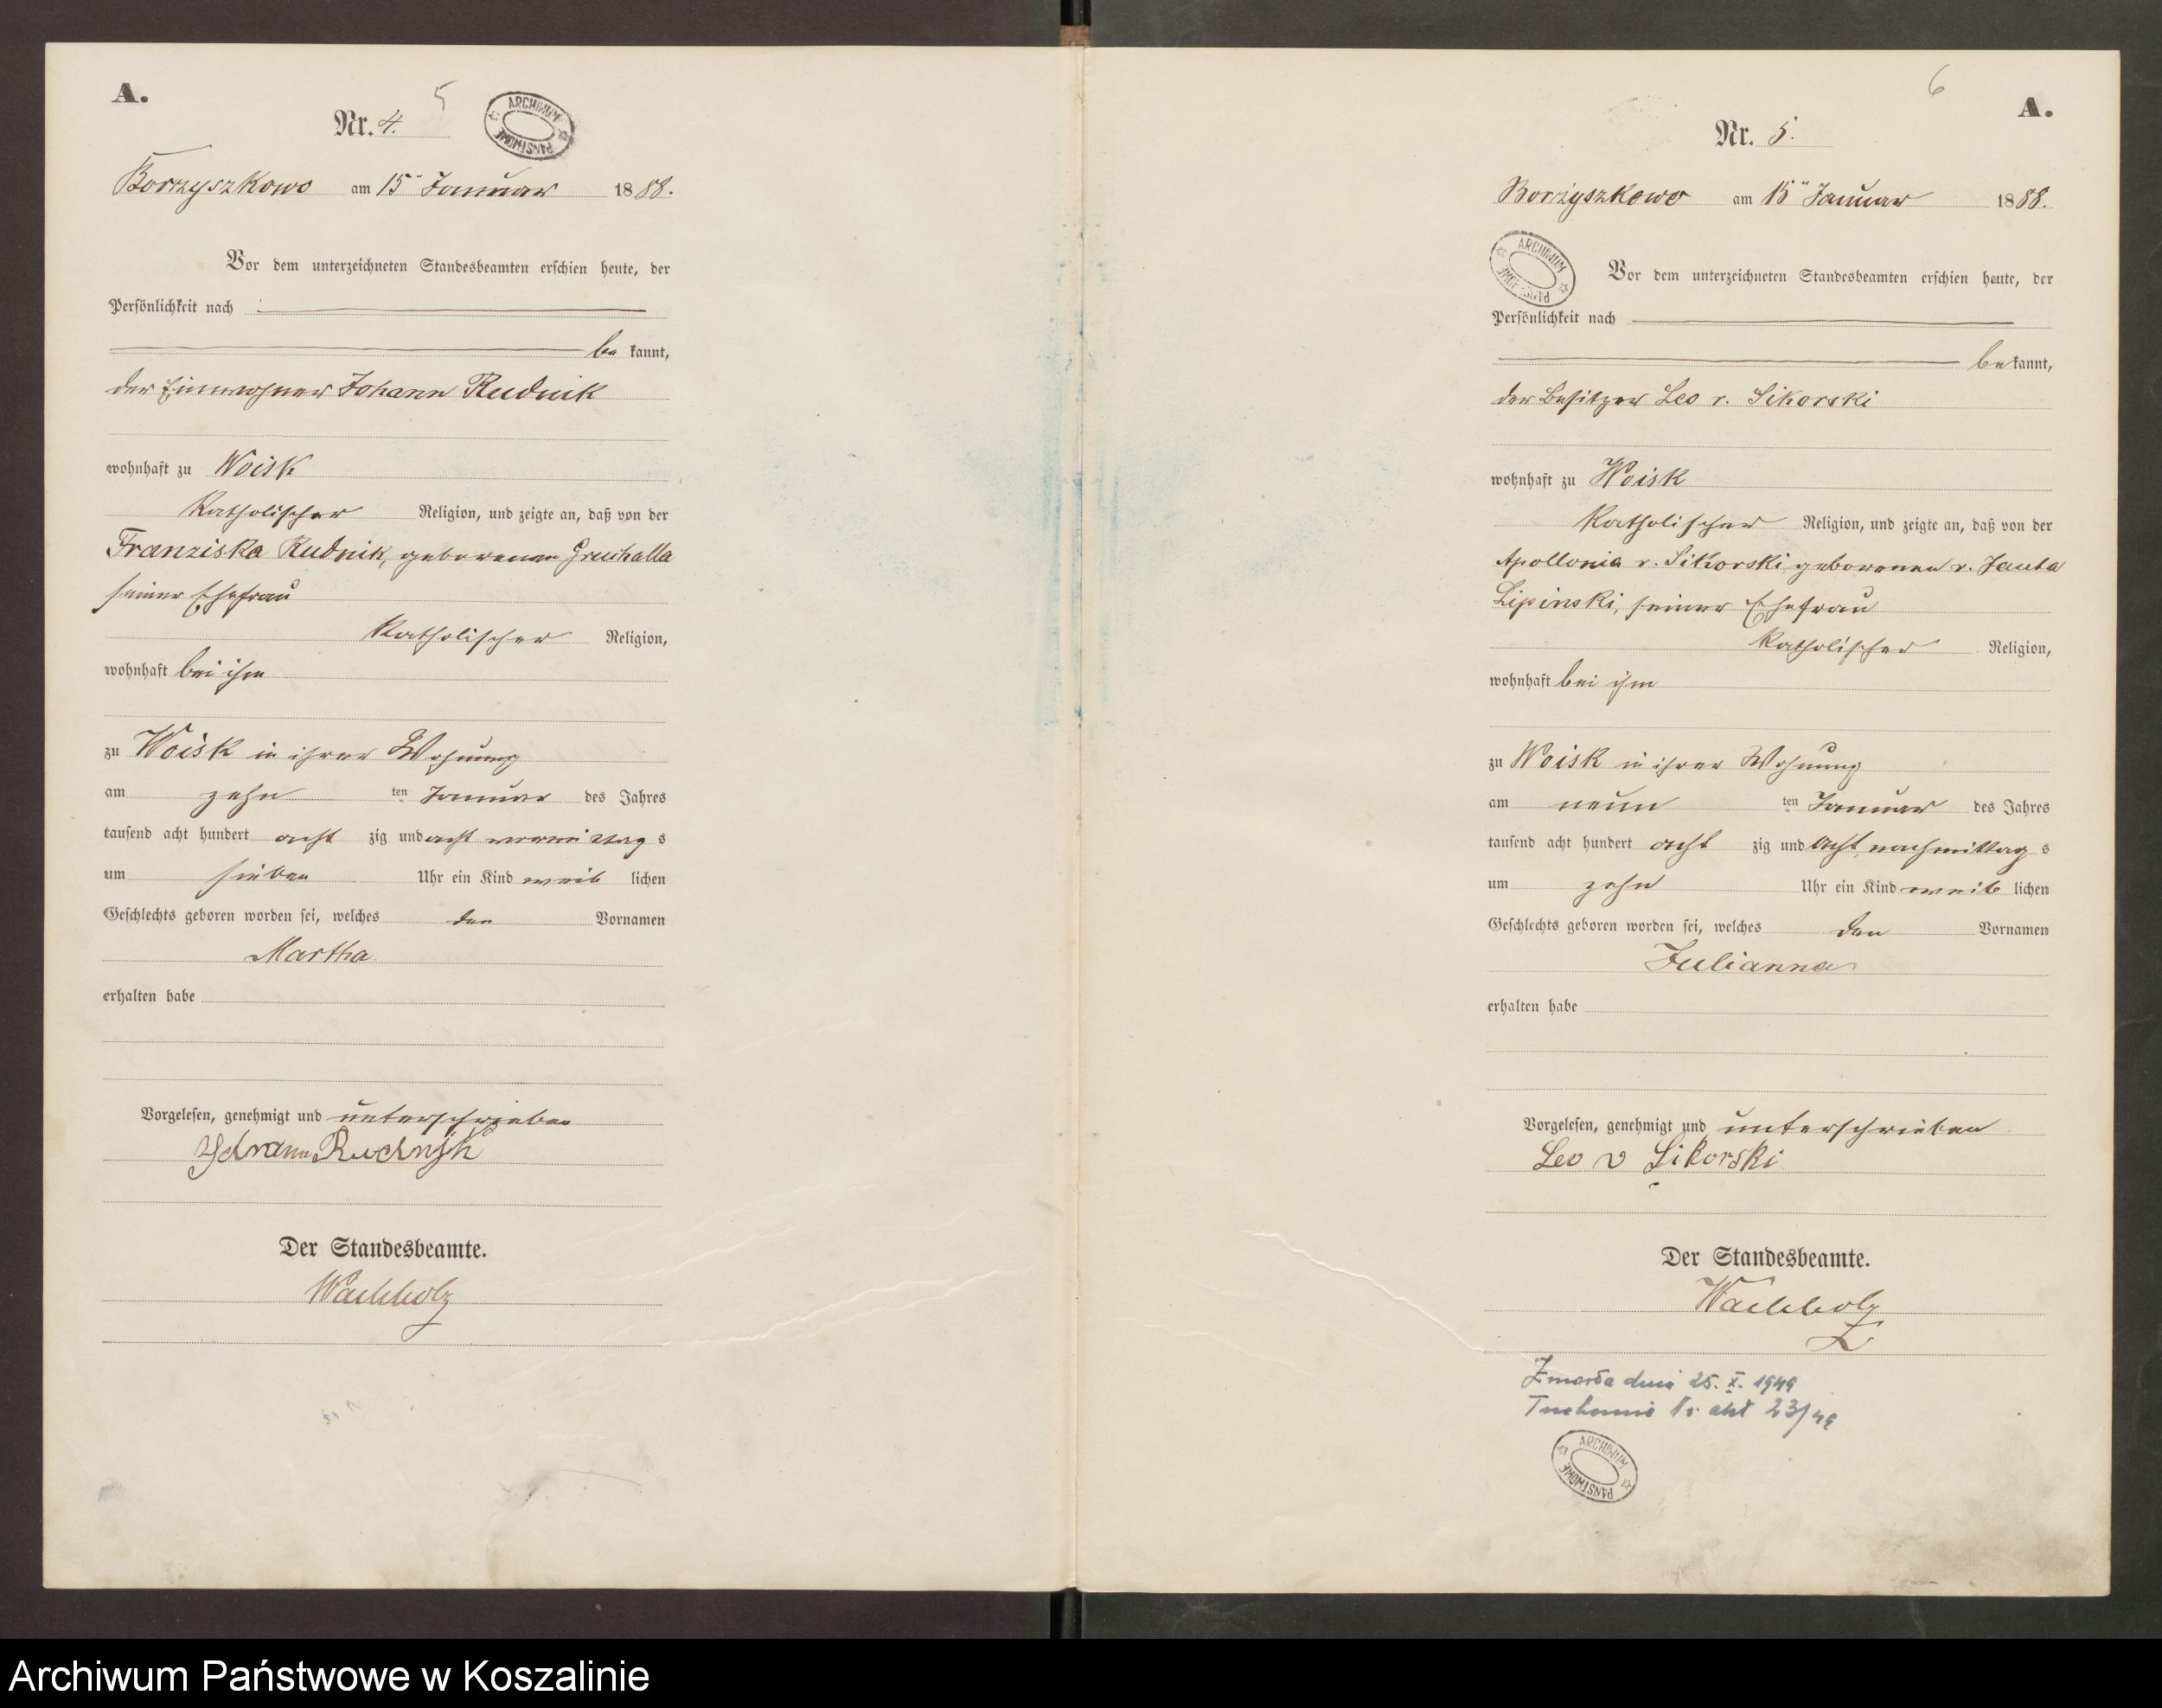 A.
Nr. 4.
5
ARCHIWUM PAŃSTWOWE
Borzyszkowo am 15ⁿ Januar 1888.
Vor dem unterzeichneten Standesbeamten erschien heute, der
Persönlichkeit nach
be kannt,
der Einwohner Johann Rudnik
wohnhaft zu Woisk
katholischer Religion, und zeigte an, daß von der
Franziska Rudnik, geborenen Gruchalla
seiner Ehefrau
katholischer Religion,
wohnhaft bei ihm
zu Woisk in ihrer Wohnung
am zehn ten Januar des Jahres
tausend acht hundert acht zig und acht vormittag s
um sieben Uhr ein Kind weib lichen
Geschlechts geboren worden sei, welches den Vornamen
Martha
erhalten habe
Vorgelesen, genehmigt und unterschrieben
Rudnik
Der Standesbeamte.
Wachholz
6
A.
Nr. 5.
Borzyszkowo am 15ⁿ Januar 1888.
ARCHIWUM PAŃSTWOWE
Vor dem unterzeichneten Standesbeamten erschien heute, der
Persönlichkeit nach
be kannt,
der Besitzer Leo v. Sikorski
wohnhaft zu Woisk
katholischer Religion, und zeigte an, daß von der
Apollonia v. Sikorski, geborenen v. Janta
Lipinski, seiner Ehefrau
katholischer Religion,
wohnhaft bei ihm
zu Woisk in ihrer Wohnung
am neun ten Januar des Jahres
tausend acht hundert acht zig und acht, nachmittag s
um zehn Uhr ein Kind weib lichen
Geschlechts geboren worden sei, welches den Vornamen
Julianna
erhalten habe
Vorgelesen, genehmigt und unterschrieben
Leo v Sikorski
Der Standesbeamte.
Wachholz
Zmarła dnia 25. X. 1949
akt 23/49
ARCHIWUM PAŃSTWOWE
Archiwum Państwowe w Koszalinie